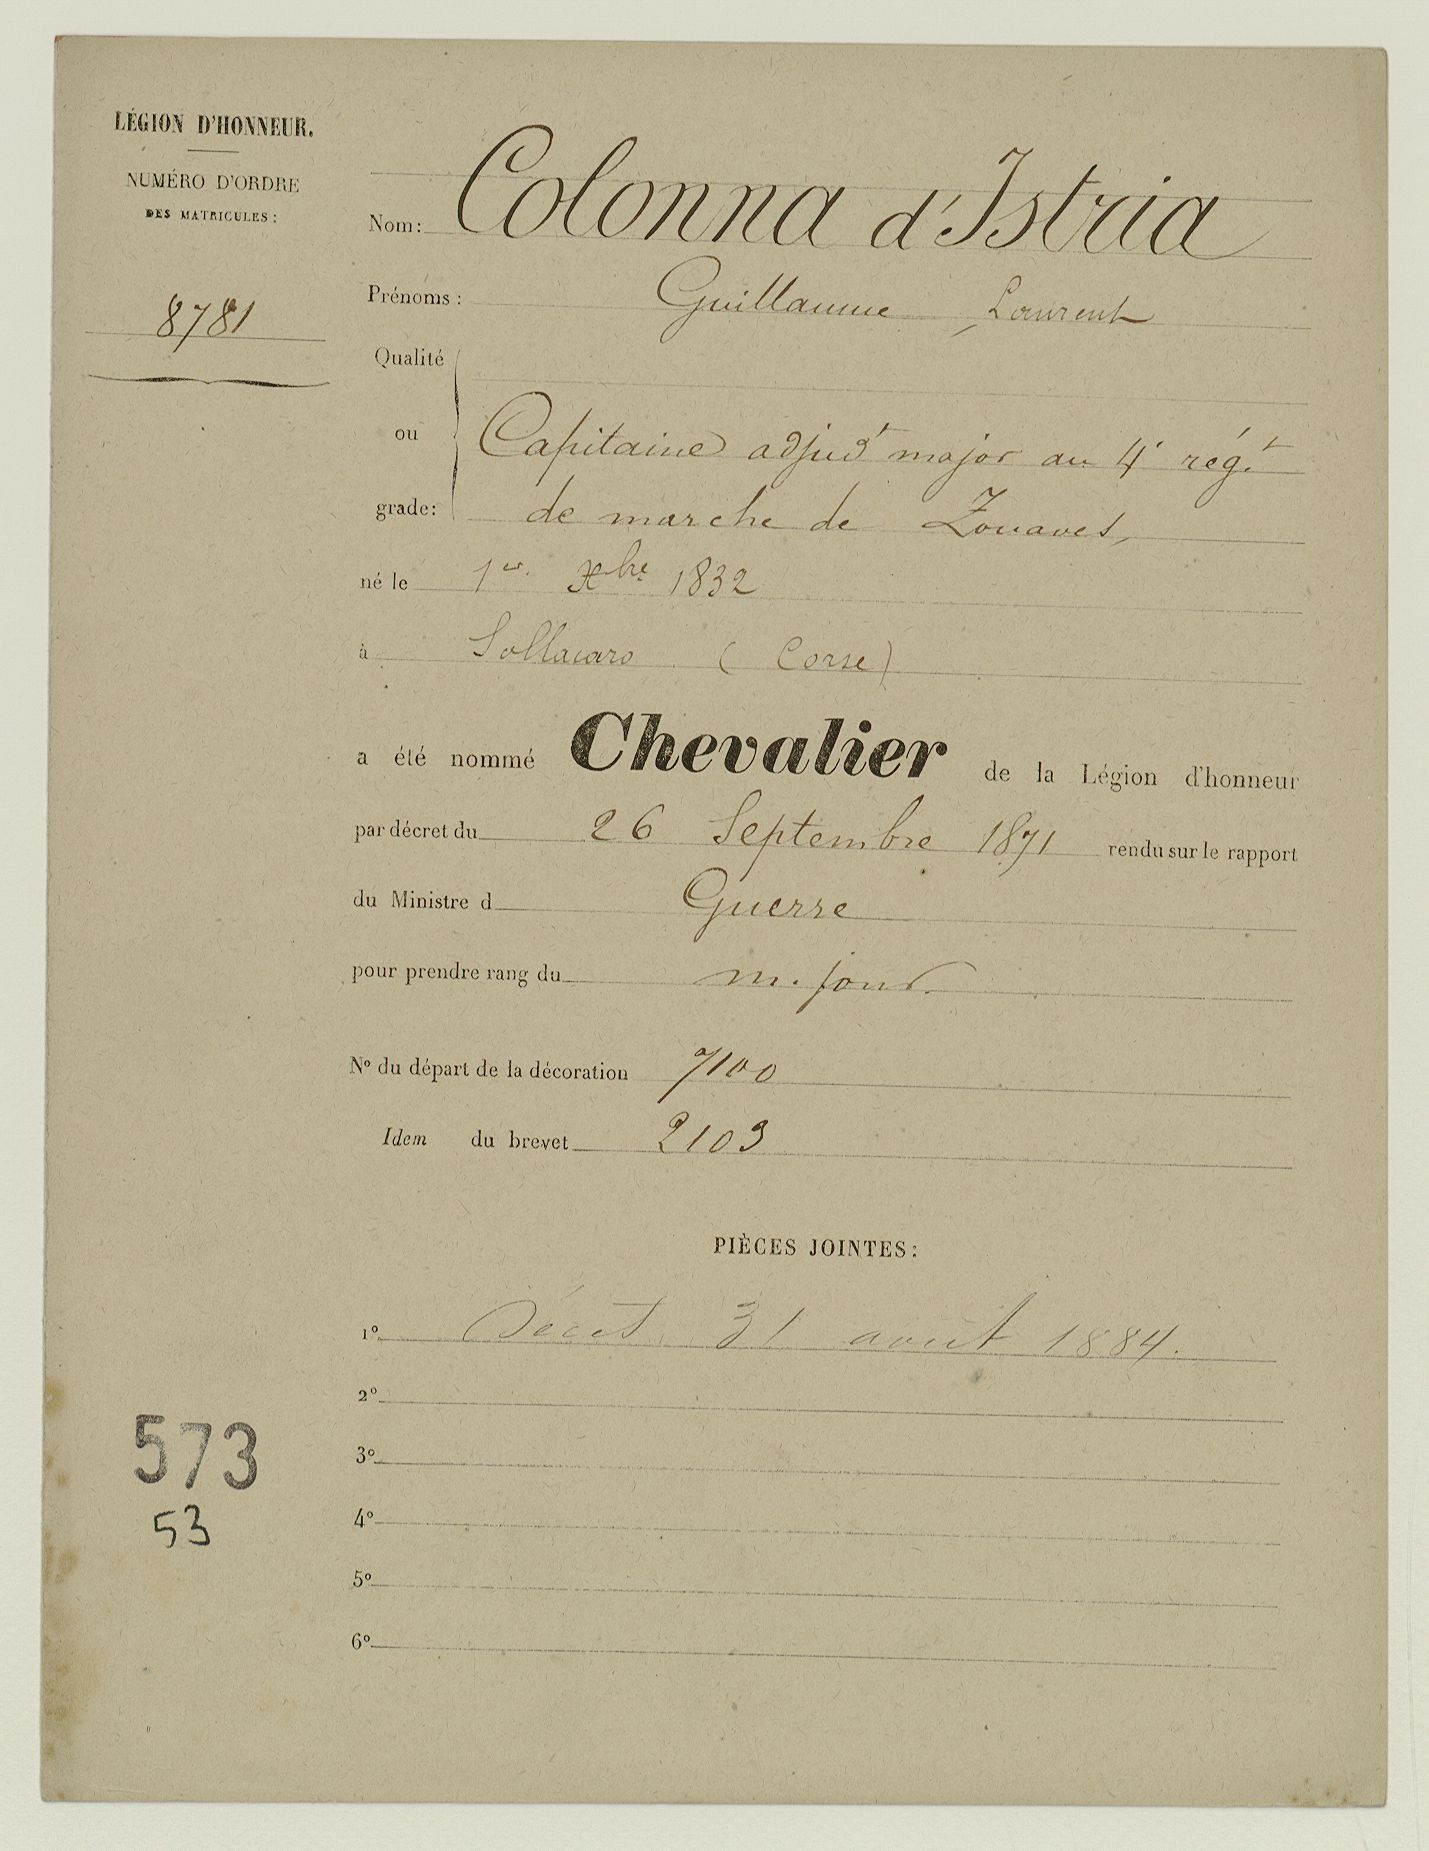 LÉGION D'HONNEUR.
NUMÉRO D'ORDRE
DES MATRICULES:
8781
Nom: Colonna d'Istria
Prénoms: Guillaume Laurent
Qualité
ou
grade:
Capitaine adjud^t major au 4^e rég.^t
de marche de Zouaves,
né le 1^er. X^bre 1832
à Sollacaro (Corse)
a été nommé Chevalier de la Légion d'honneur
par décret du 26 Septembre 1871 rendu sur le rapport
du Ministre d Guerre
pour prendre rang du m. jour.
N° du départ de la décoration 7100
Idem du brevet 2103
PIÈCES JOINTES:
1° Décès 31 août 1884.
2°
3°
4°
5°
6°
573
53